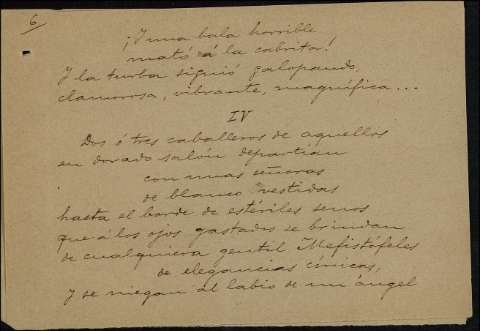 6
¡Y una bala horrible
mató á la cabrita!
Y la turba siguió galopando,
clamorosa, vibrante, magnífica...
IV
Dos ó tres caballeros de aquellos
en dorado salón departían
con unas señoras
de blanco vestidas
hasta el borde de estériles senos
que á los ojos gastados se brindan
de cualquiera gentil Mefistófeles
de elegancias cínicas,
y se niegan al labio de un ángel